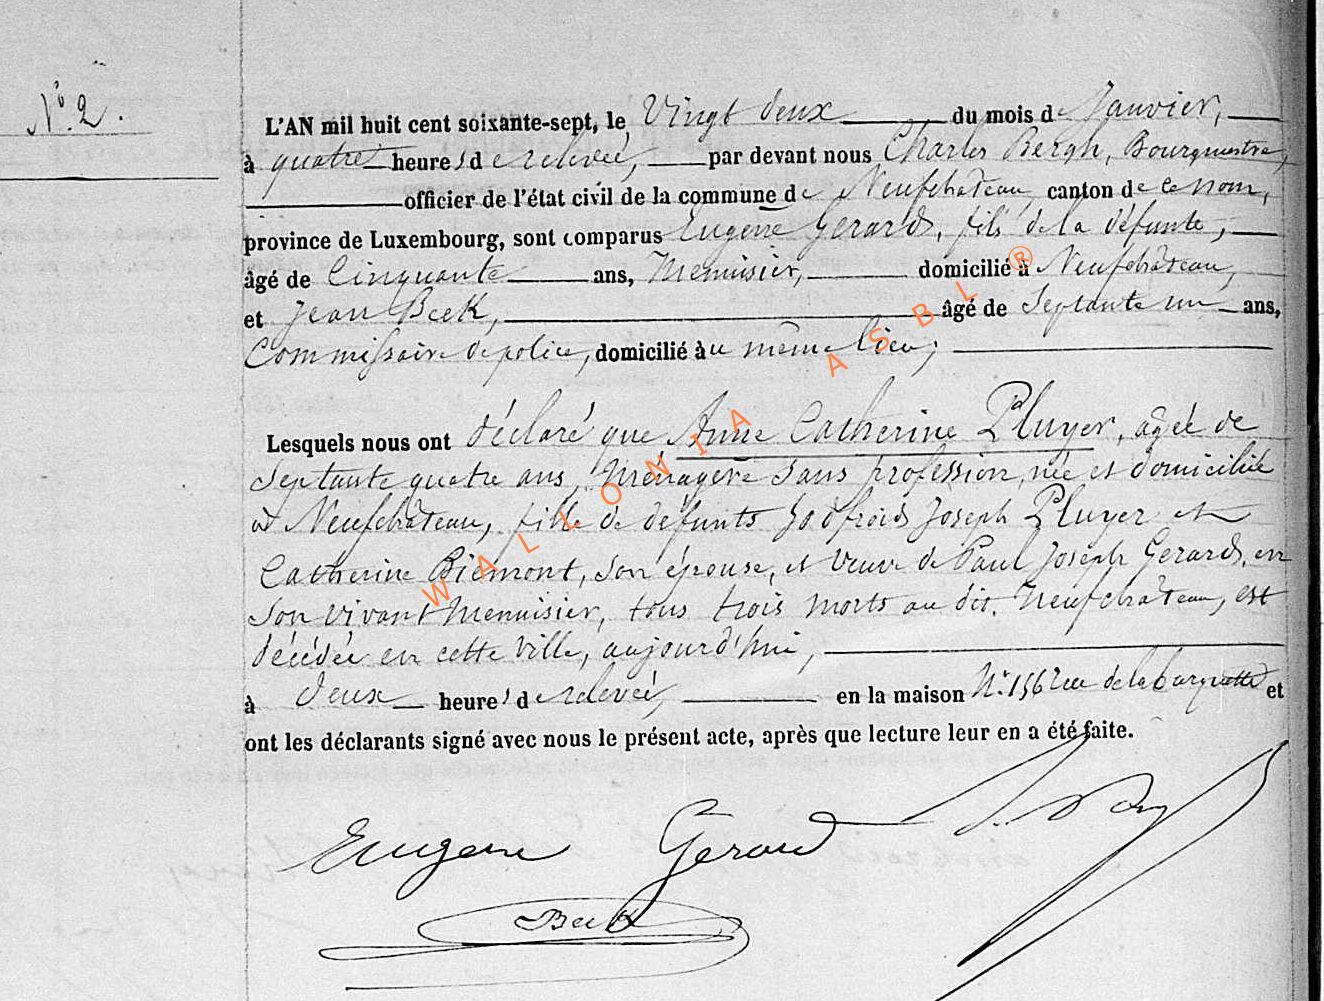 N° 2.
L'AN mil huit cent soixante-sept, le Vingt deux du mois de Janvier,
à quatre heures de relevée, par devant nous Charles Bergh, Bourgmestre,
officier de l'état civil de la commune de Neufchâteau, canton de ce nom,
province de Luxembourg, sont comparus Eugène Gerard, fils de la défunte,
âgé de Cinquante ans, Menuisier, domicilié à Neufchâteau,
et Jean Beck, âgé de Septante un ans,
Commissaire de police, domicilié au même lieu;
Lesquels nous ont déclaré que Anne Catherine Pluyer, agée de
Septante quatre ans, Ménagère sans profession, née et domiciliée
à Neufchâteau, fille de défunts Godfroid Joseph Pluyer et
Catherine Biémont, son épouse, et Veuve de Paul Joseph Gerard, en
son vivant Menuisier, tous trois morts au dit Neufchâteau, est
décédée en cette Ville, aujourd'hui,
à Deux heures de relevée, en la maison N° 156 rue de la barquette et
ont les déclarants signé avec nous le présent acte, après que lecture leur en a été faite.
Eugene Gerard
Beck
WALLONIA ASBL ®